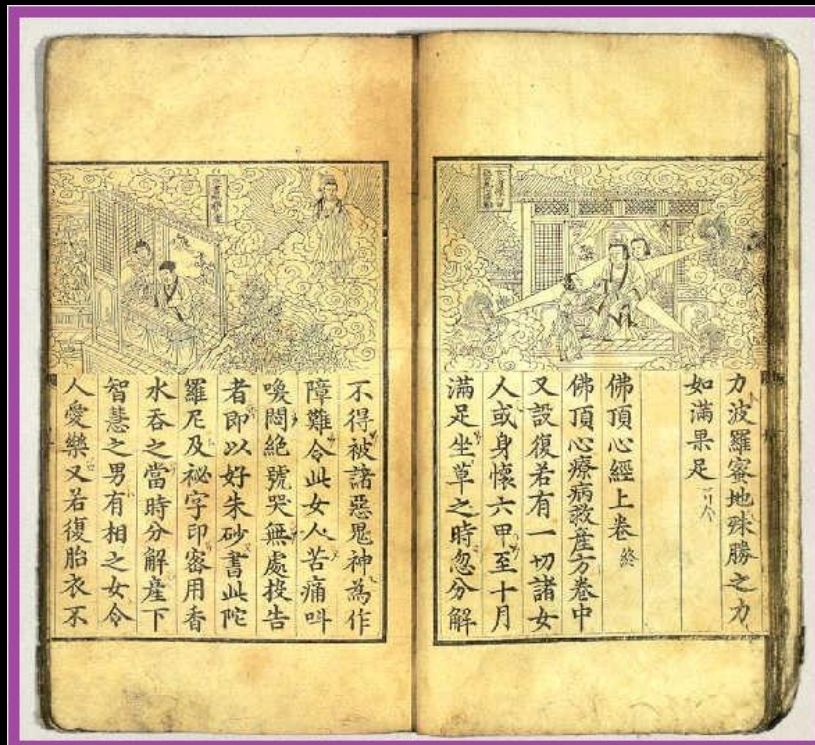 力波羅蜜地殊勝之力
如滿果足
佛頂心經上卷 終
佛頂心療病救產方卷中
又設復若有一切諸女
人或身懷六甲至十月
滿足坐草之時忽分解
不得被諸惡鬼神為作
障難令此女人苦痛叫
喚悶絕號哭無處投告
者即以好朱砂書此陀
羅尼及祕字印密用香
水吞之當時分解產下
智慧之男有相之女令
人愛樂又若復胎衣不